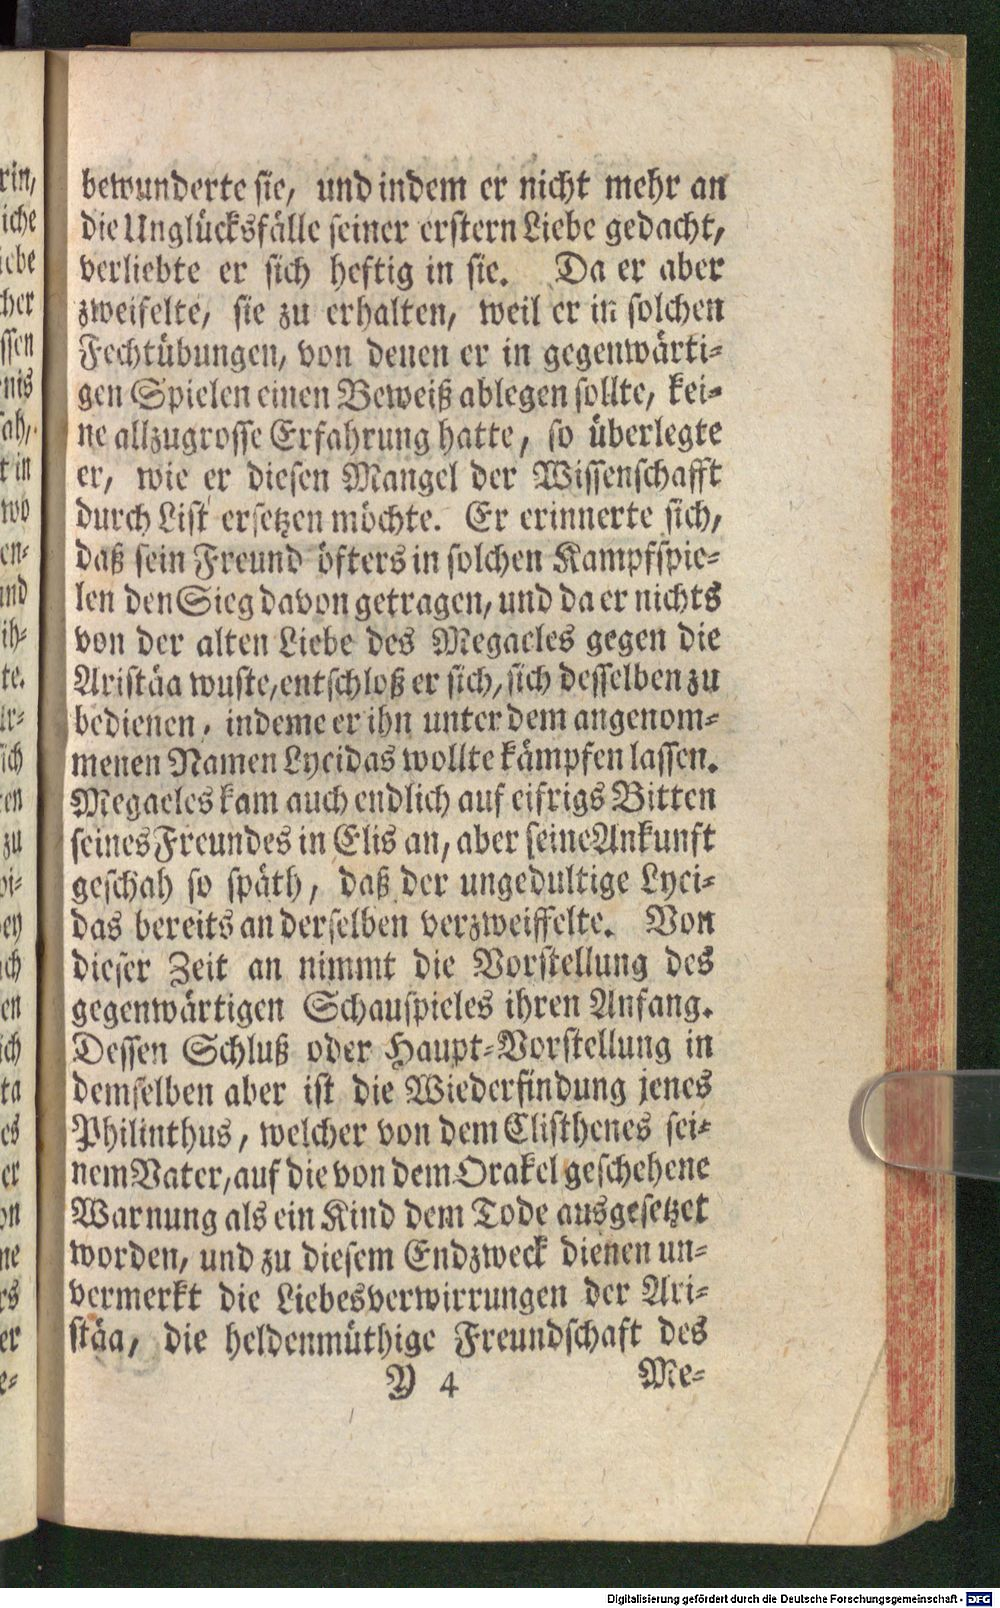 bewunderte sie, und indem er nicht mehr an
die Unglücksfälle seiner erstern Liebe gedacht,
verliebte er sich heftig in sie. Da er aber
zweifelte, sie zu erhalten, weil er in solchen
Fechtübungen, von denen er in gegenwärti-
gen Spielen einen Beweiß ablegen sollte, kei-
ne allzugrosse Erfahrung hatte, so überlegte
er, wie er diesen Mangel der Wissenschafft
durch List ersetzen möchte. Er erinnerte sich,
daß sein Freund öfters in solchen Kampfspie-
len den Sieg davon getragen, und da er nichts
von der alten Liebe des Megacles gegen die
Aristäa wuste, entschloß er sich, sich desselben zu
bedienen, indeme er ihn unter dem angenom-
menen Namen Lycidas wollte kämpfen lassen.
Megacles kam auch endlich auf eifrigs Bitten
seines Freundes in Elis an, aber seine Ankunft
geschah so späth, daß der ungedultige Lyci-
das bereits an derselben verzweiffelte. Von
dieser Zeit an nimmt die Vorstellung des
gegenwärtigen Schauspieles ihren Anfang.
Dessen Schluß oder Haupt-Vorstellung in
demselben aber ist die Wiederfindung jenes
Philinthus, welcher von dem Clisthenes sei-
nem Vater, auf die von dem Orakel geschehene
Warnung als ein Kind dem Tode ausgesetzet
worden, und zu diesem Endzweck dienen un-
vermerkt die Liebesverwirrungen der Ari-
stäa, die heldenmüthige Freundschaft des
Y 4 Me-
rin,
iche
iebe
cher
ssen
nis
sah,
t in
wo
en-
und
ih-
te.
Ar-
sich
ten
zu
pi-
bey
ich
en
ich
ta
es
er
on
ne
rs
er
e-
Digitalisierung gefördert durch die Deutsche Forschungsgemeinschaft - DFG